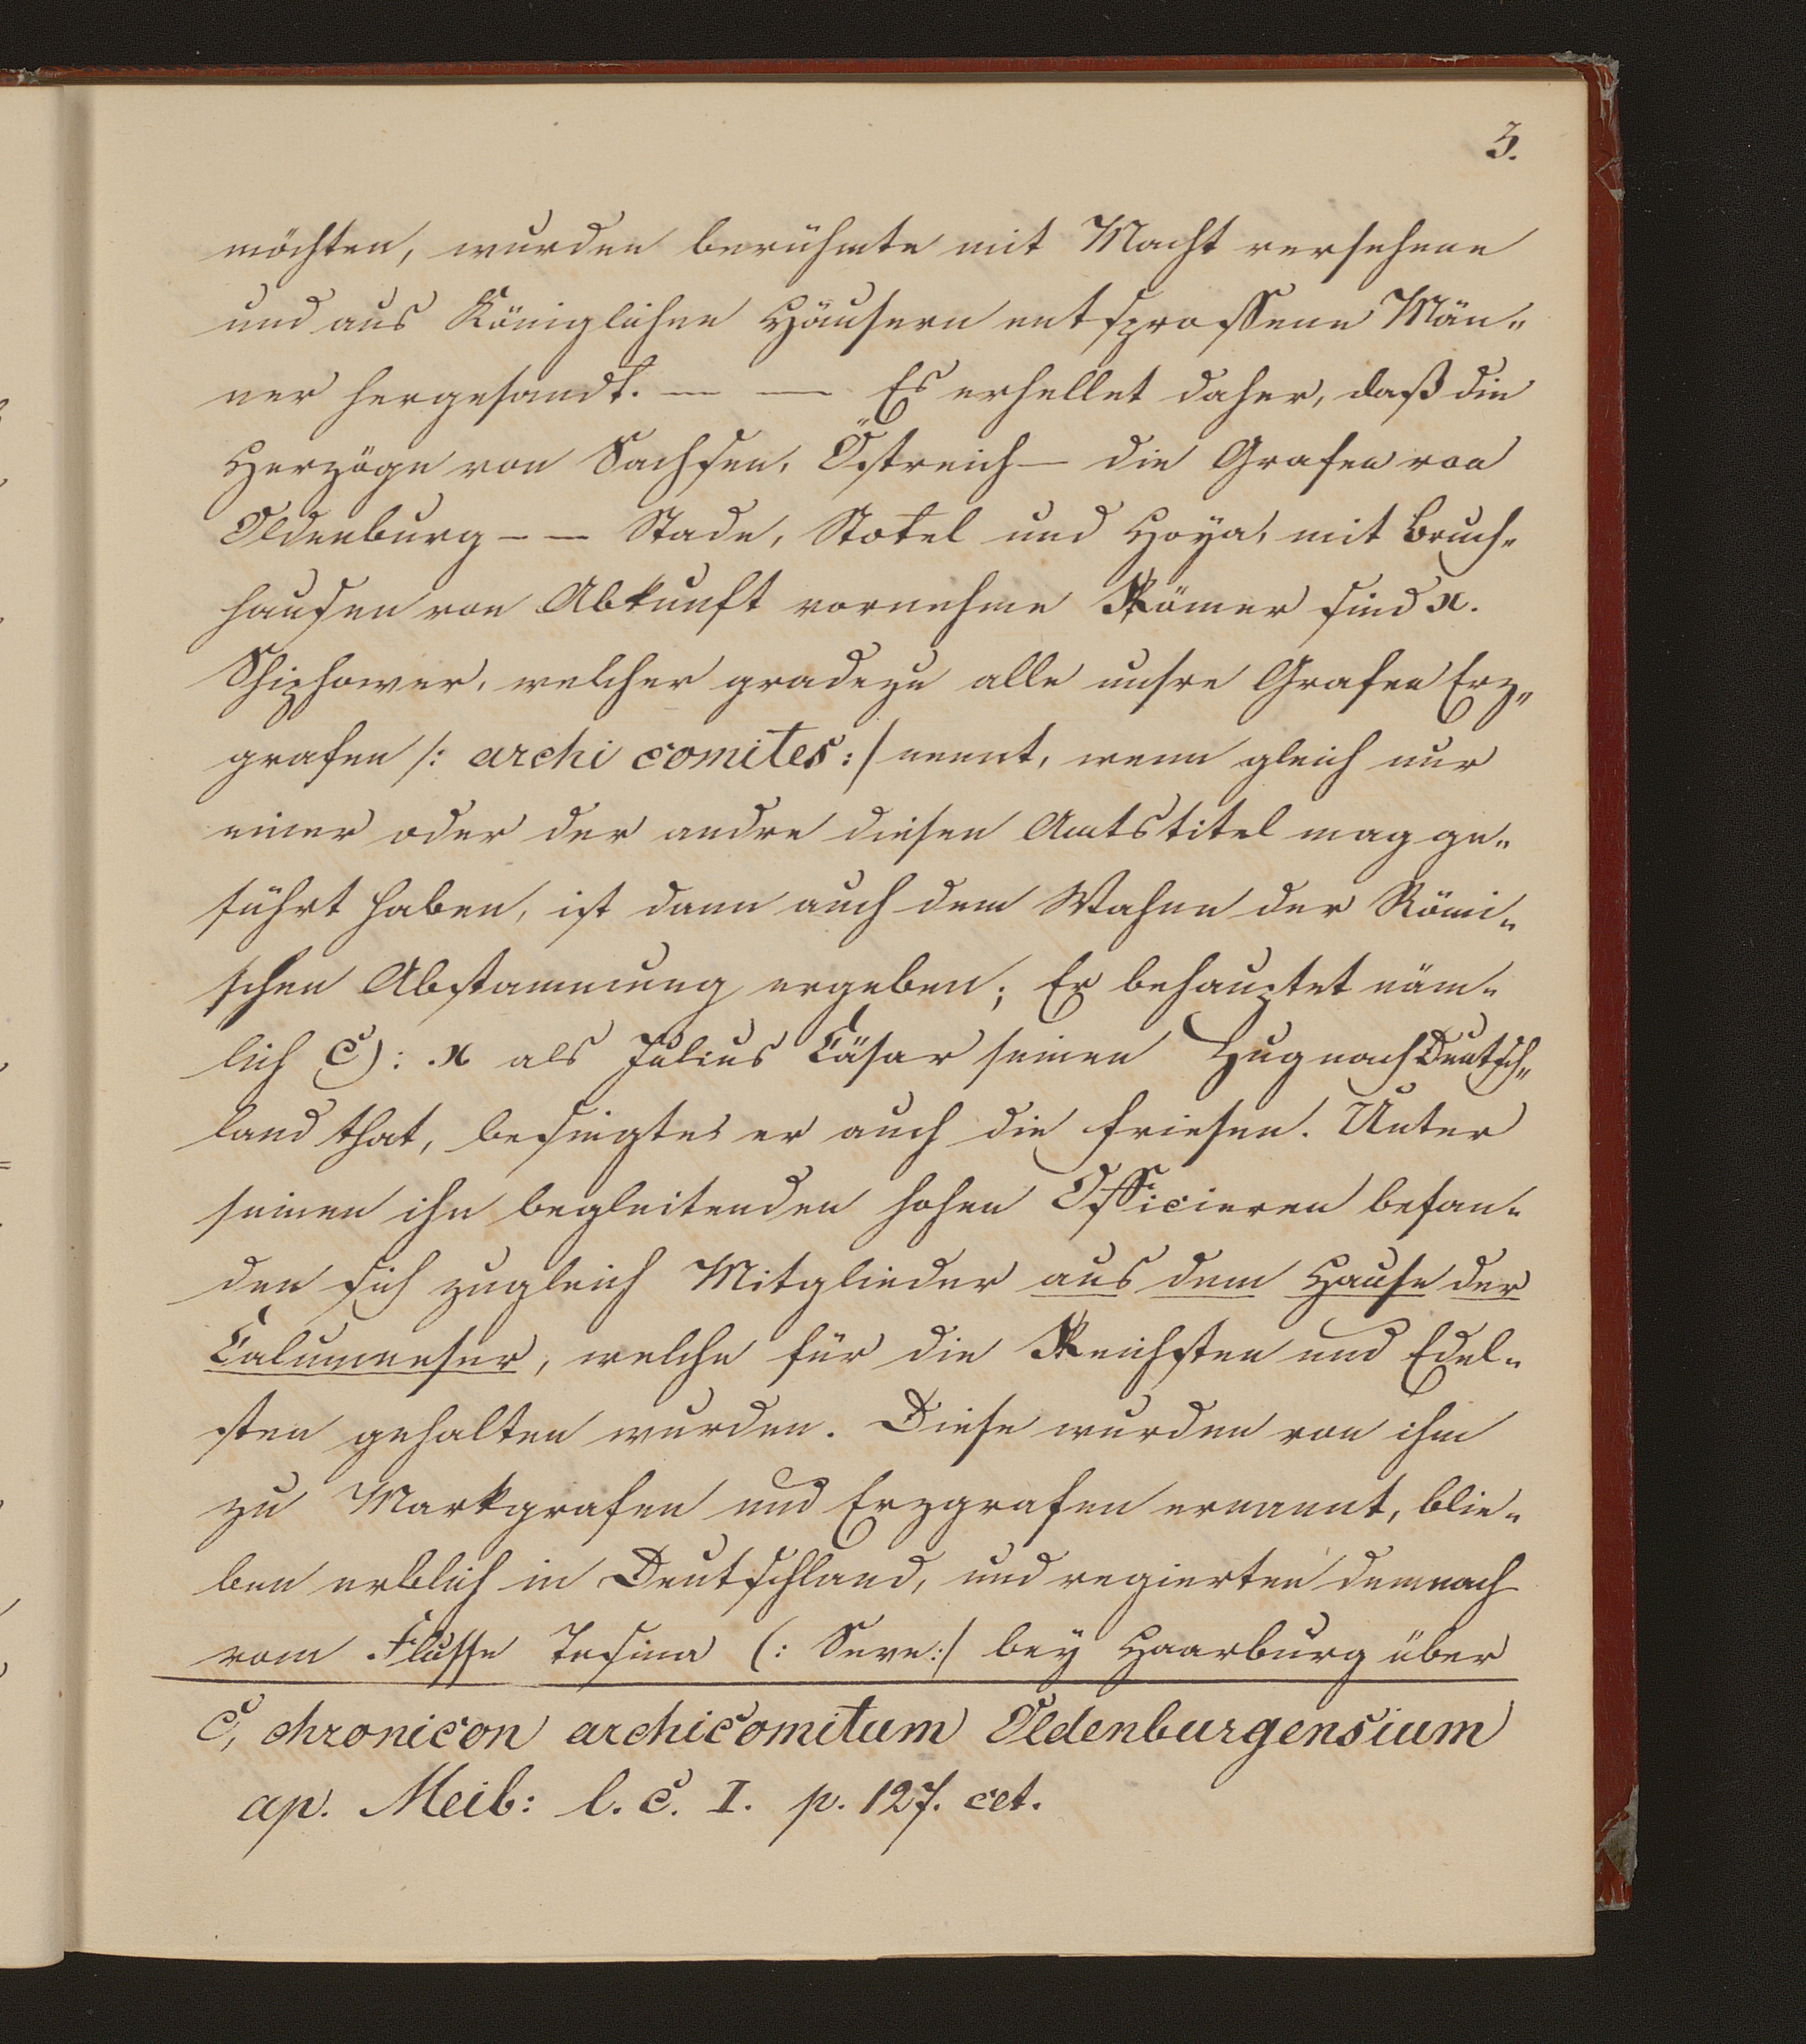 3.
möchten, wurden berühmte mit Macht versehene
und aus Königlichen Häusern entsprossene Män„
ner hergesandt. — — Es erhellet daher, daß die
Herzöge von Sachsen, Östreich — die Grafen von
Oldenburg - — Stade, Stotel und Hoya, mit Bruch„
hausen von Abkunft vornehme Römer sind x.
Schiphower, welcher gradezu alle unsre Grafen Erz„
grafen /: archi comites :/ nennt, wenn gleich nur
einer oder der andre diesen Amtstitel mag ge„
führt haben, ist dann auch dem Wahne der Römi„
schen Abstammung ergeben; Er behauptet näm„
lich c): x als Julius Cäsar seinen Zug nach Deutsch„
land that, besiegte er auch die Friesen. Unter
seinen ihn begleitenden hohen Officieren befan„
den sich zugleich Mitglieder aus dem Hause der
Calumneser, welche für die Reichsten und Edel„
sten gehalten wurden. Diese wurden von ihm
zu Markgrafen und Erzgrafen ernannt, blie„
ben erblich in Deutschland, und regierten demnach
vom Flusse Tesina (: Seve :/ bey Haarburg über
c, chronicon archicomitum Oldenburgensium
ap. Meib: l. c. I. p. 127. cet.